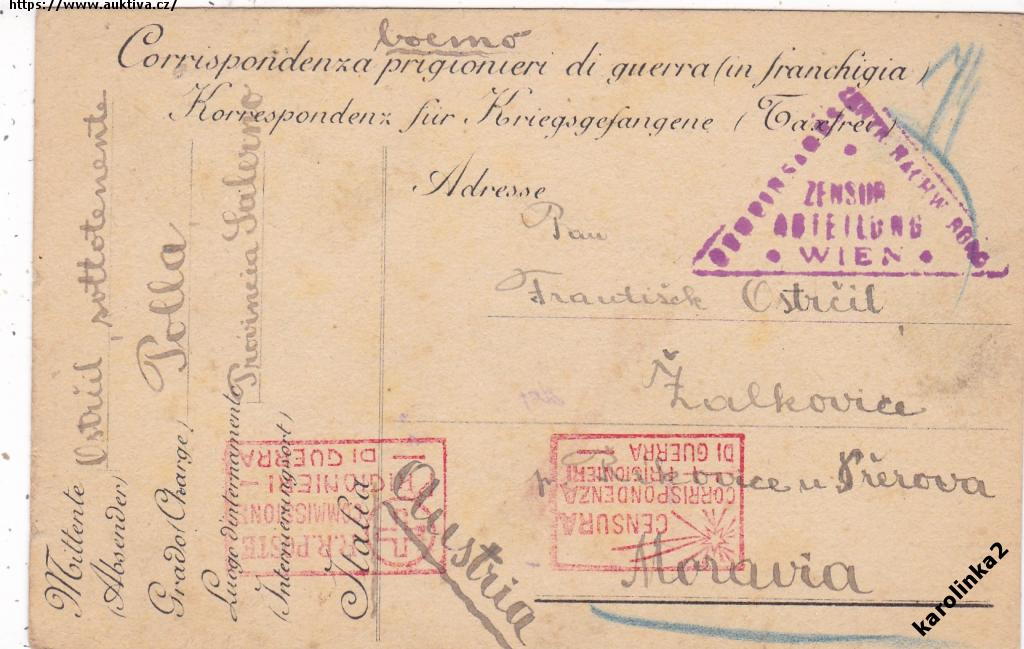 https://www.auktiva.cz/
boemo
Corrispondenza prigionieri di guerra (in franchigia)
Korrespondenz für Kriegsgefangene (Taxfrei)
Adresse
Pan
František Ostrčil
Žalkovice
p. u Přerova
Moravia
Austria
Mittente Ostrčil, sottotenente
(Absender)
Grado (Charge) Polla
Luogo d'internamento Provincia Salerno
(Internierungsort)
Italia
ZENSUR
ABTEILUNG
WIEN
R.R. POSTE
COMMISSIONE
PRIGIONIERI
DI GUERRA
CENSURA
CORRISPONDENZA
PRIGIONIERI
DI GUERRA
karolinka2